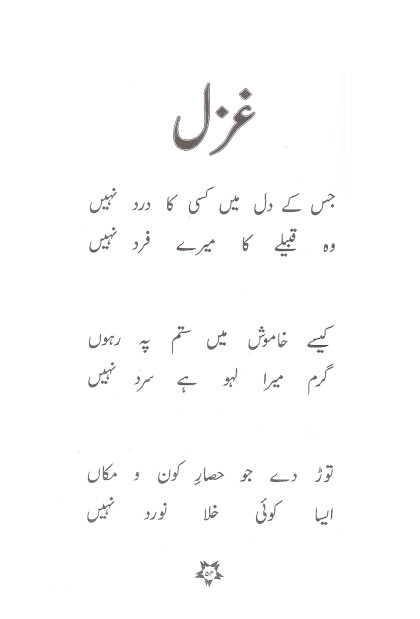 غزل
جس کے دل میں کسی کا درد نہیں
وہ قبیلے کا میرے فرد نہیں
کیسے خاموش میں ستم پہ رہوں
گرم میرا لہو ہے سرد نہیں
توڑ دے جو حصارِ کون و مکاں
ایسا کوئی خلا نورد نہیں
۵۳